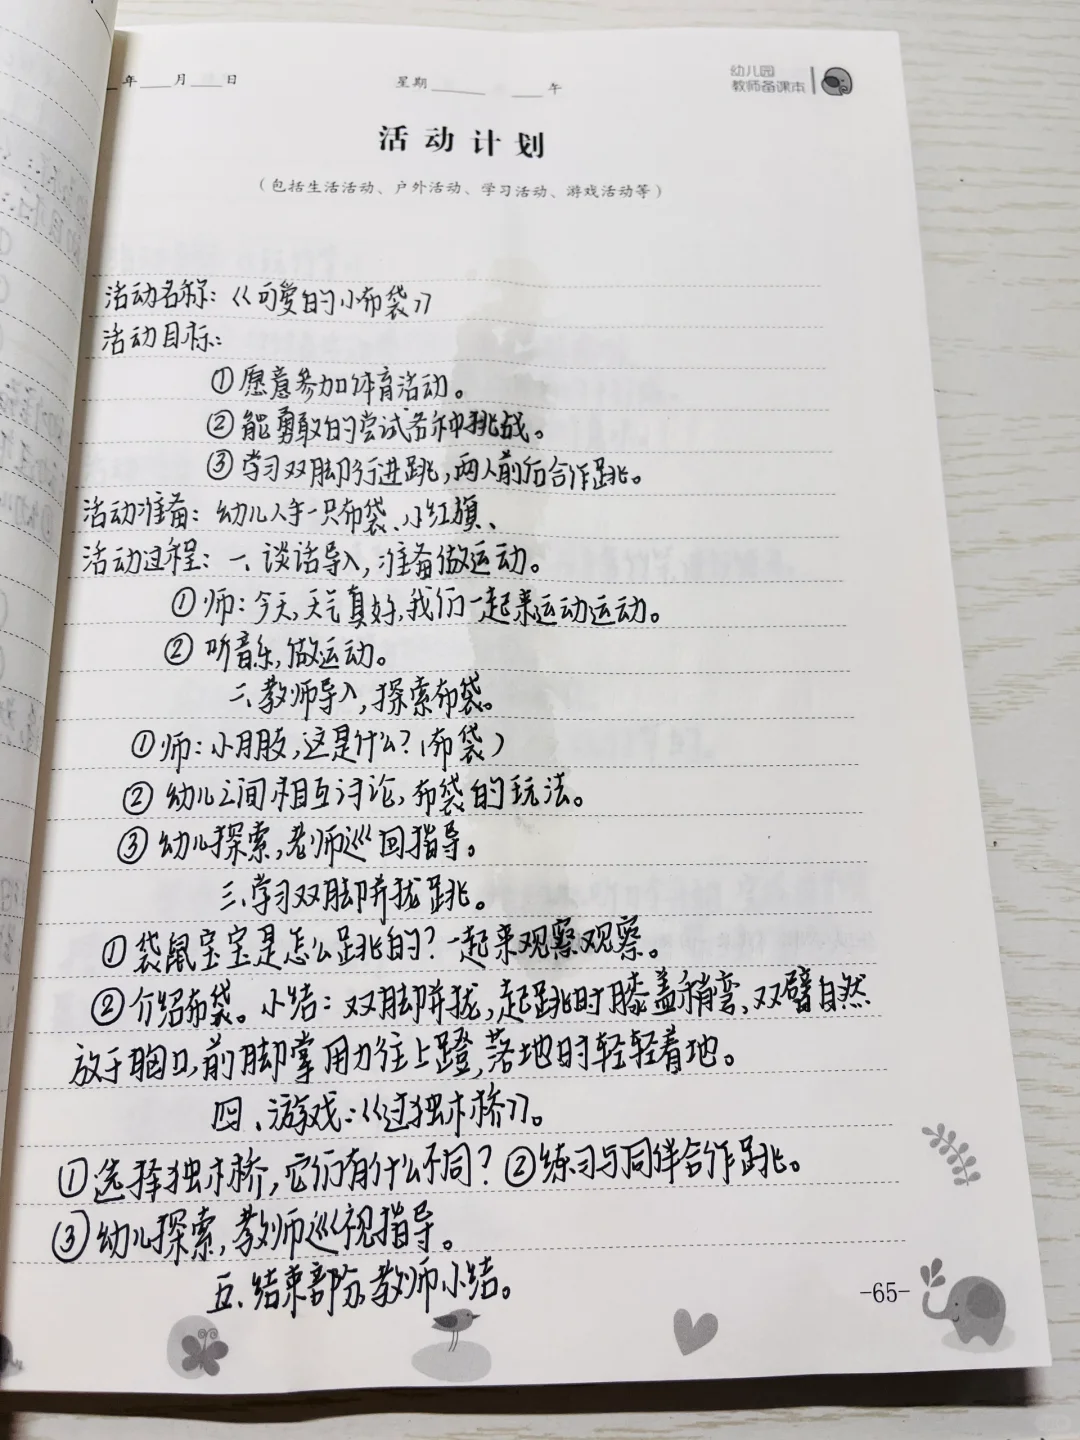 年 月 日 星期 午
幼儿园
教师备课本
活动计划
（包括生活活动、户外活动、学习活动、游戏活动等）
活动名称：《可爱的小布袋》
活动目标：
①愿意参加体育活动。
②能勇敢的尝试各种挑战。
③学习双脚行进跳，两人前后合作跳。
活动准备：幼儿人手一只布袋、小红旗、
活动过程：一、谈话导入，准备做运动。
①师：今天，天气真好，我们一起来运动运动。
②听音乐，做运动。
二、教师导入，探索布袋。
①师：小朋友，这是什么？（布袋）
②幼儿之间相互讨论，布袋的玩法。
③幼儿探索，老师巡回指导。
三、学习双脚并拢跳。
①袋鼠宝宝是怎么跳的？一起来观察观察。
②介绍布袋。小结：双脚并拢，起跳时膝盖稍弯、双臂自然
放于胸口，前脚掌用力往上蹬，落地时轻轻着地。
四、游戏：《过独木桥》。
①选择独木桥，它们有什么不同？②练习与同伴合作跳。
③幼儿探索，教师巡视指导。
五、结束部分，教师小结。
-65-